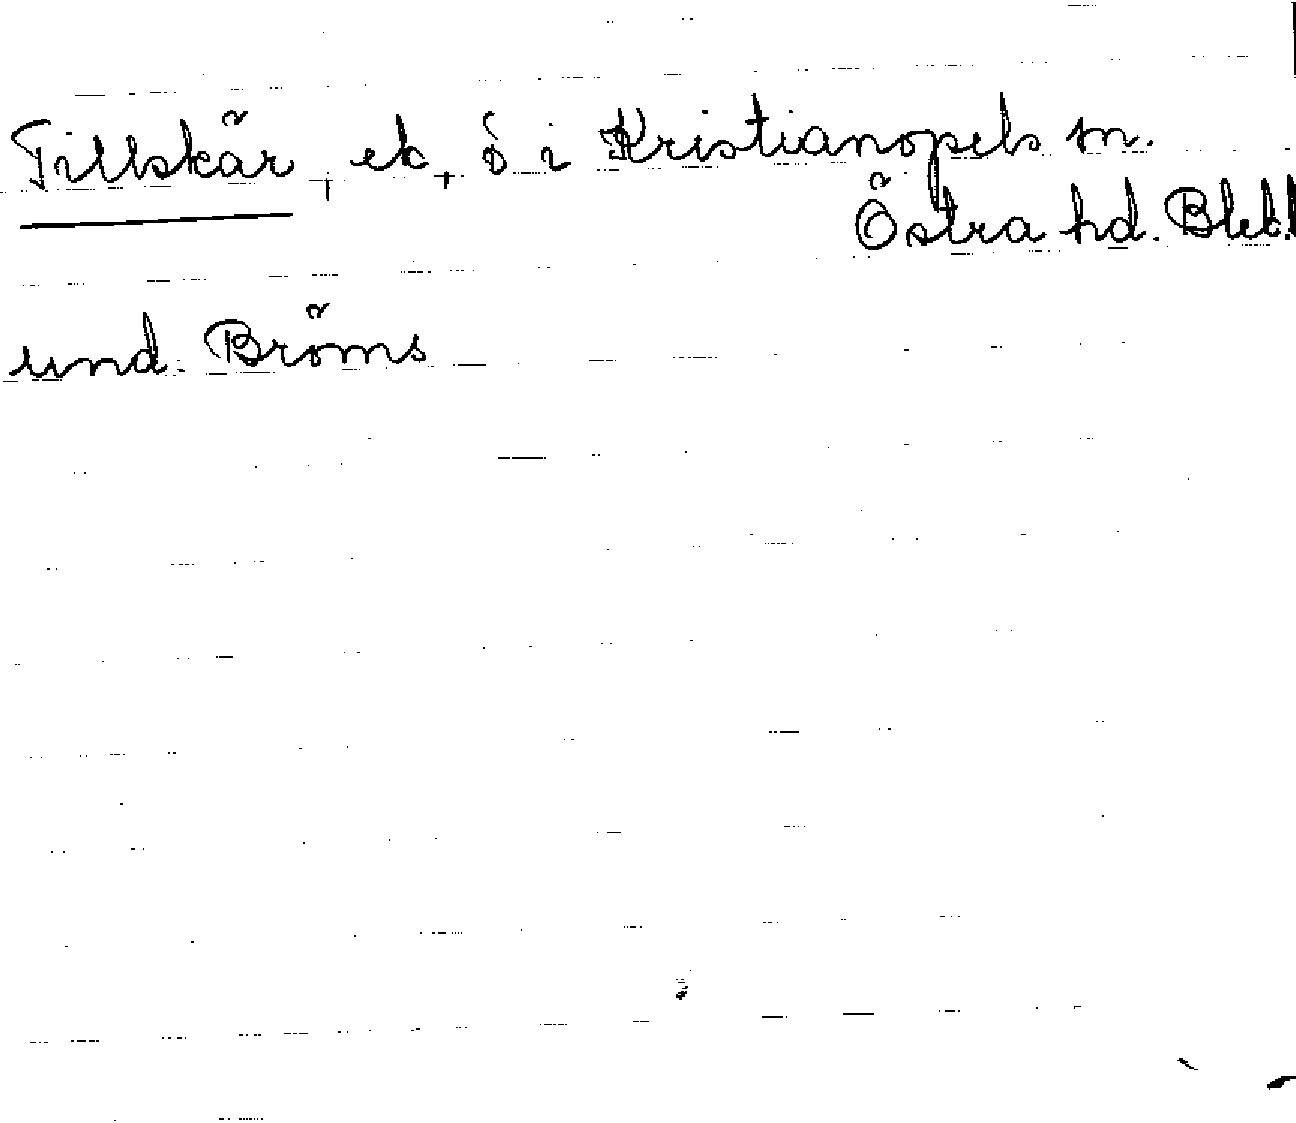 Tillskär, ek, ö i Kristianopels sn.
Östra hd. Blek.
und. Bröms